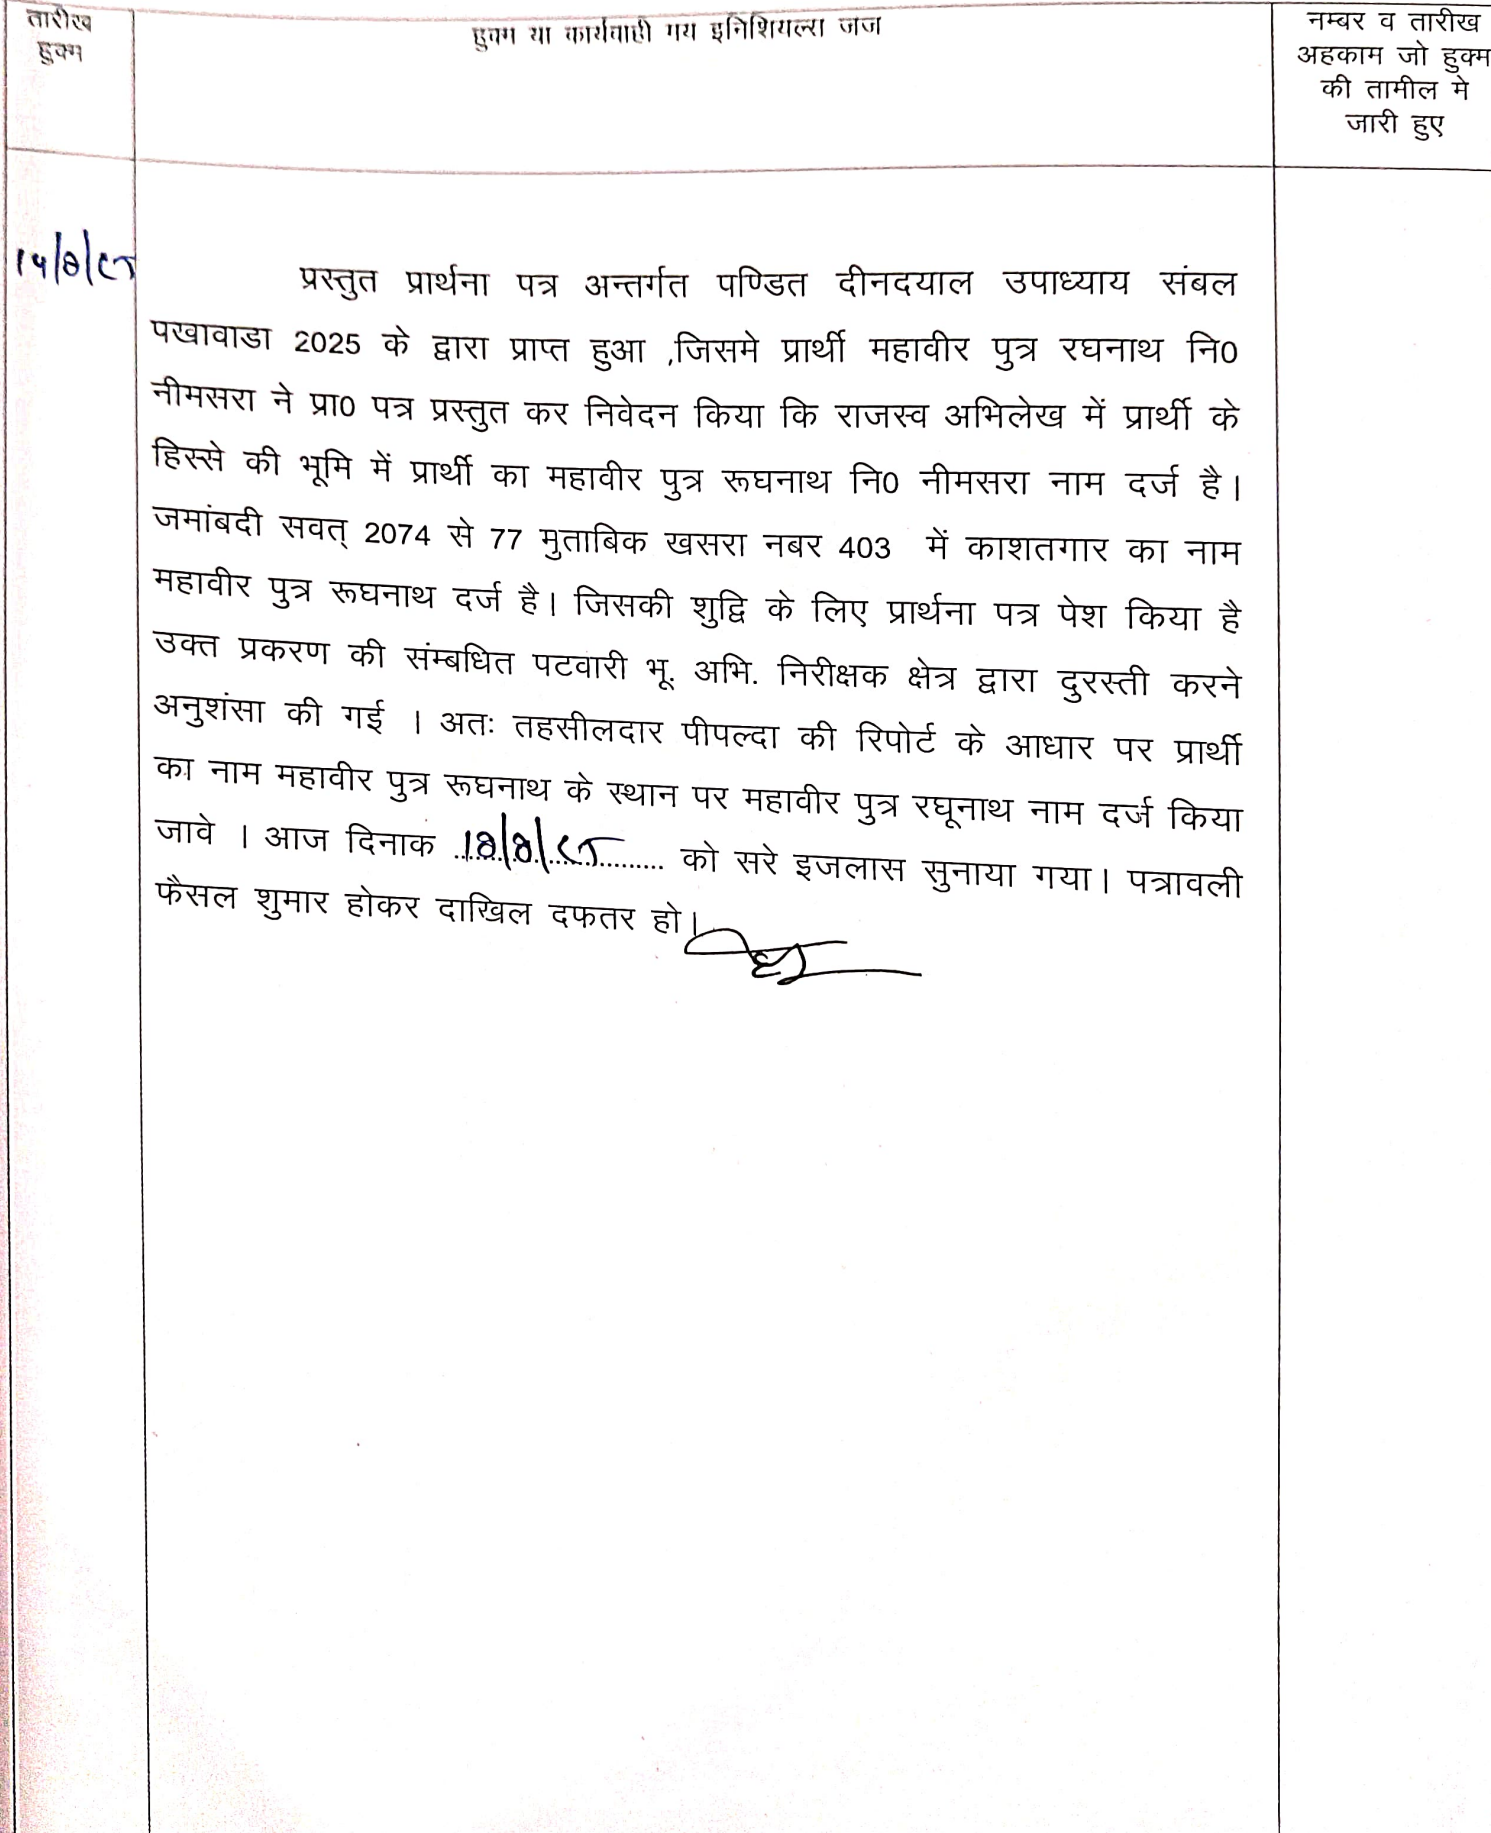 तारीख
हुक्म
हुक्म या कार्यवाही मय इनिशियल्स जज
नम्बर व तारीख
अहकाम जो हुक्म
की तामील मे
जारी हुए
प्रस्तुत प्रार्थना पत्र अन्तर्गत पण्डित दीनदयाल उपाध्याय संबल
पखावाडा 2025 के द्वारा प्राप्त हुआ ,जिसमे प्रार्थी महावीर पुत्र रघनाथ नि0
नीमसरा ने प्रा0 पत्र प्रस्तुत कर निवेदन किया कि राजस्व अभिलेख में प्रार्थी के
हिस्से की भूमि में प्रार्थी का महावीर पुत्र रूघनाथ नि0 नीमसरा नाम दर्ज है।
जमांबदी सवत् 2074 से 77 मुताबिक खसरा नबर 403 में काशतगार का नाम
महावीर पुत्र रूघनाथ दर्ज है। जिसकी शुद्वि के लिए प्रार्थना पत्र पेश किया है
उक्त प्रकरण की संम्बधित पटवारी भू. अभि. निरीक्षक क्षेत्र द्वारा दुरस्ती करने
अनुशंसा की गई । अतः तहसीलदार पीपल्दा की रिपोर्ट के आधार पर प्रार्थी
का नाम महावीर पुत्र रूघनाथ के स्थान पर महावीर पुत्र रघूनाथ नाम दर्ज किया
जावे । आज दिनाक ............ को सरे इजलास सुनाया गया। पत्रावली
फैसल शुमार होकर दाखिल दफतर हो।